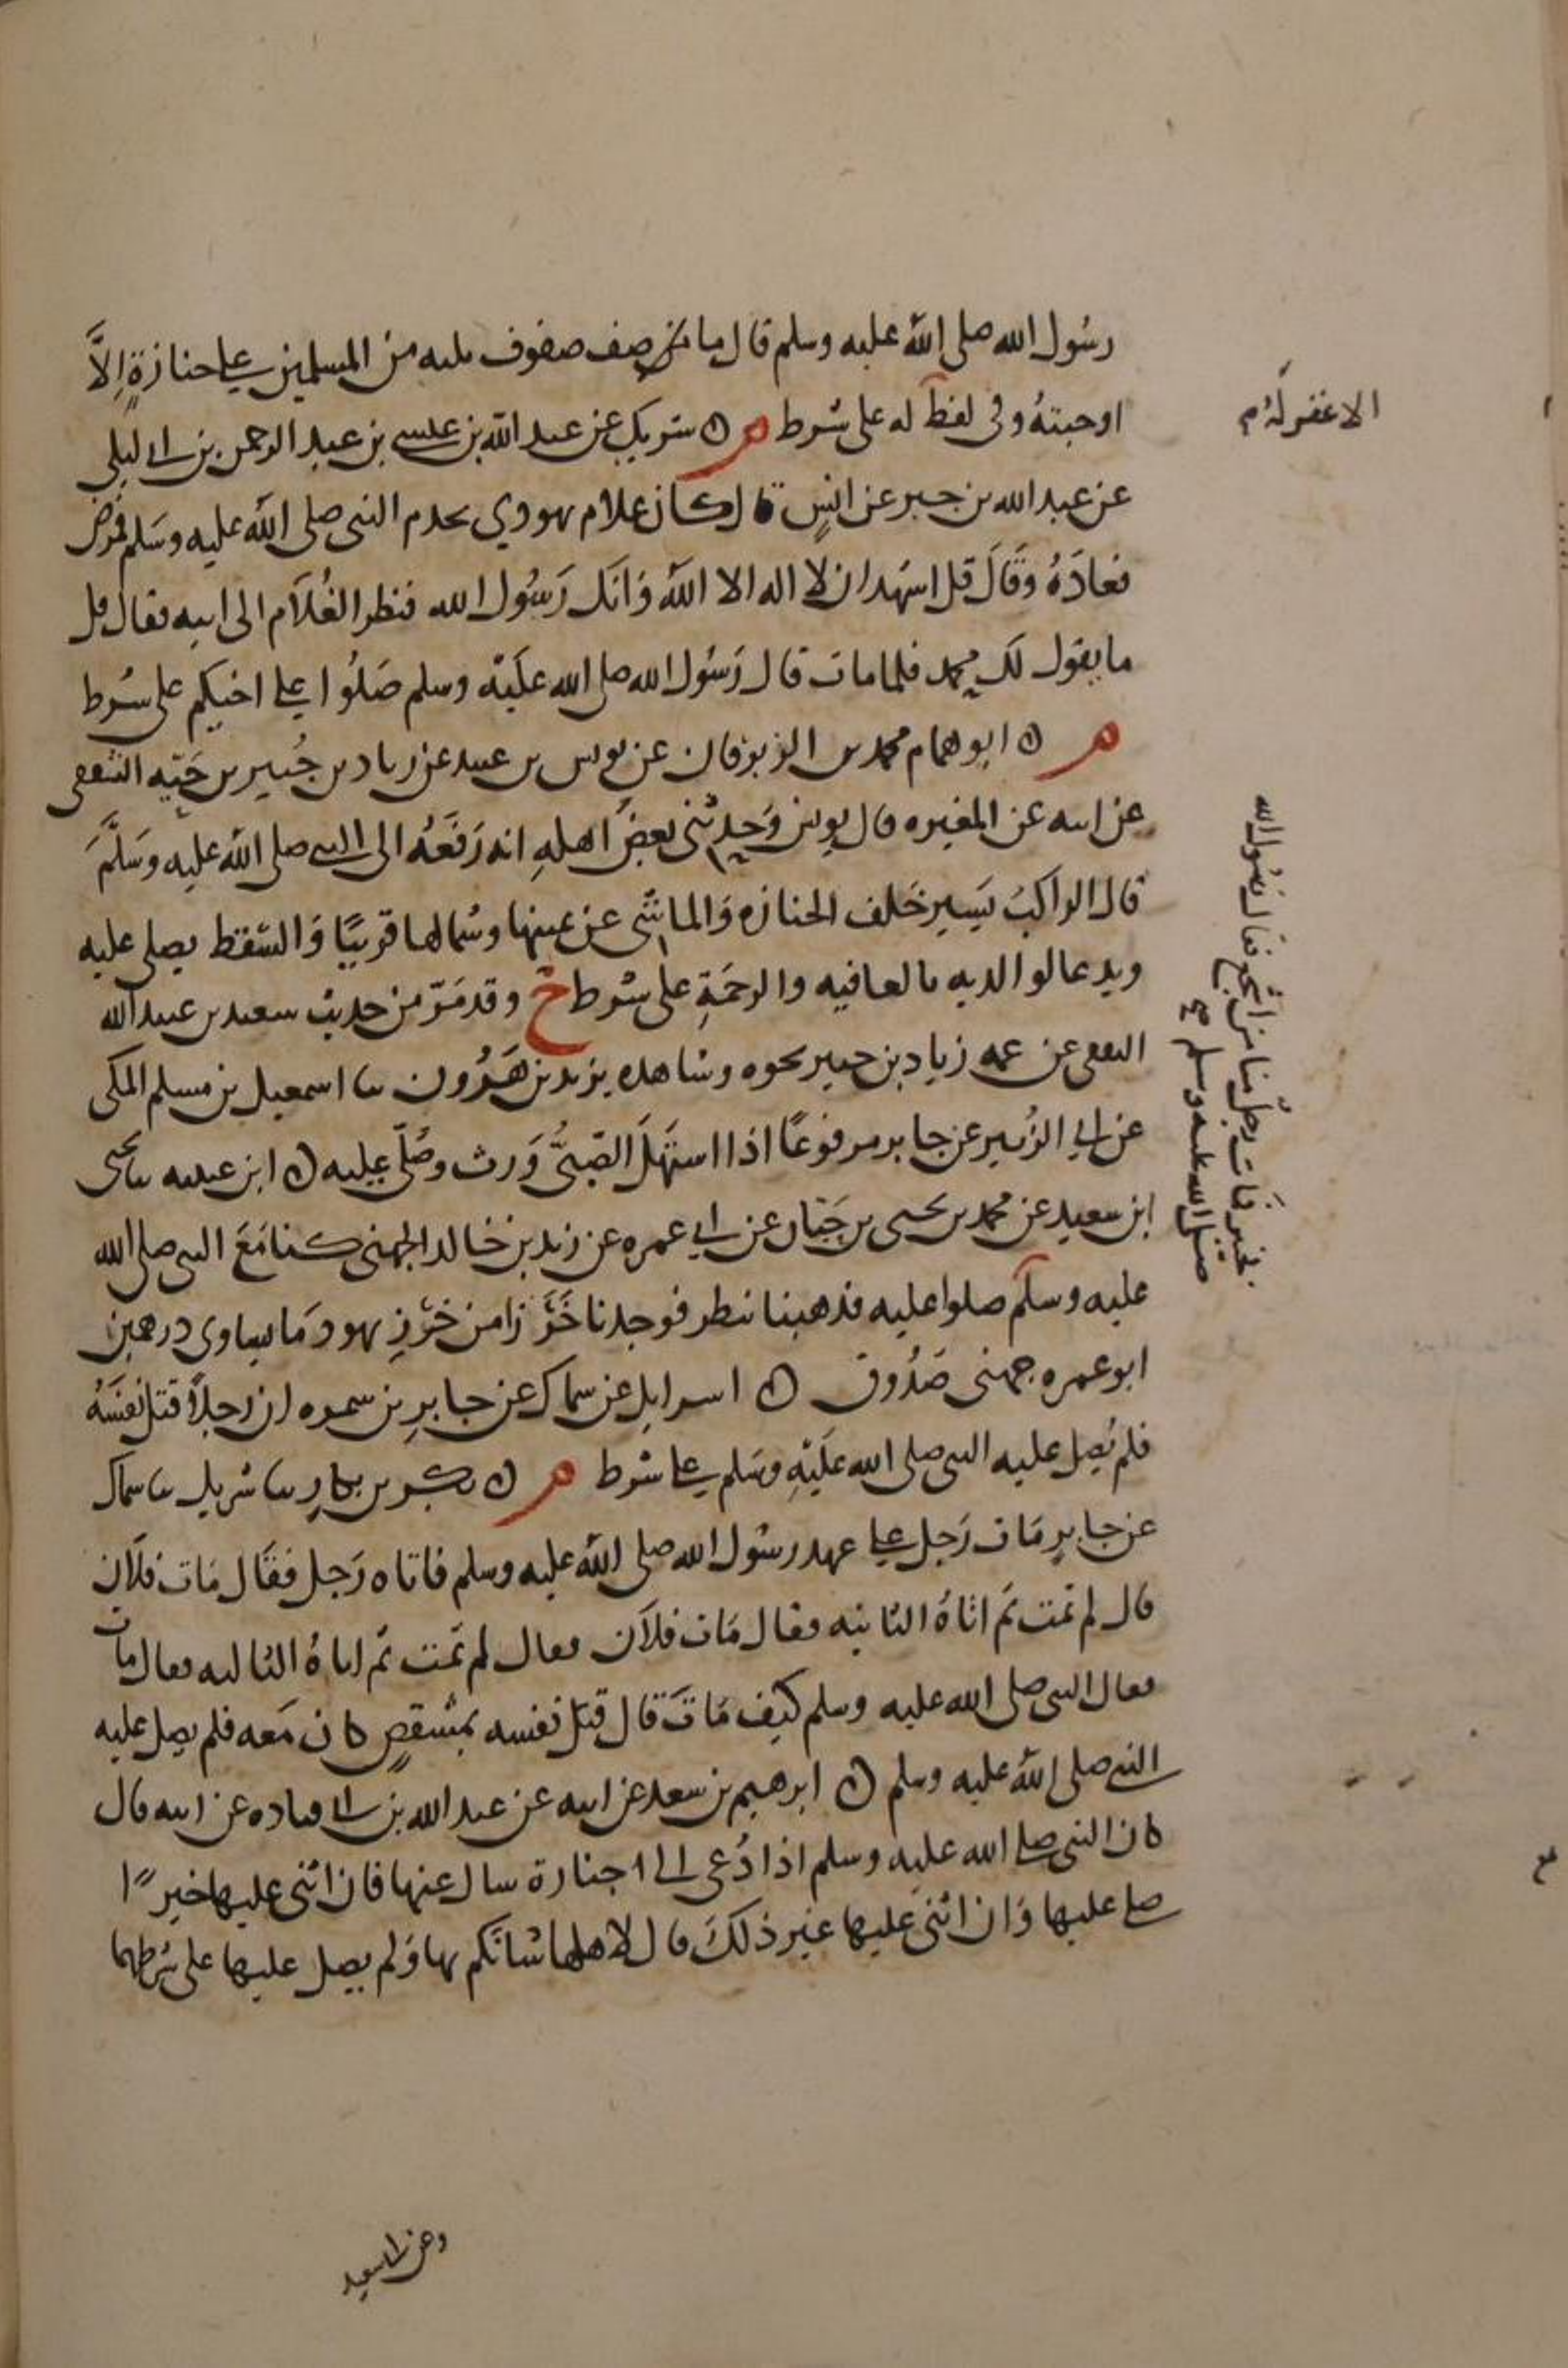 رسول الله صلى الله عليه وسلم قال ما من صف صفوف ثلثه من المسلمين على جنازة إلا
اوجبته وفي لفظ له على شرط م ٥ شريك عن عبد الله بن عيسى بن عبد الرحمن بن ابي ليلى
عن عبد الله بن جبر عن انس قال كان غلام يهودي يخدم النبي صلى الله عليه وسلم فمرض
فعاده وقال قل اشهد ان لا اله الا الله وانك رسول الله فنظر الغلام الى ابيه فقال قل
ما يقول لك محمد فلما مات قال رسول الله صلى الله عليه وسلم صلوا على اخيكم على شرط
م ٥ ابو همام محمد بن الزبرقان عن يونس بن عبيد عن زياد بن جبير بن حيه الثقفي
عن ابيه عن المغيره قال يونس وحدثني بعض اهله انه رفعه الى النبي صلى الله عليه وسلم
قال الراكب يسير خلف الجنازه والماشي عن يمينها وشمالها قريبا والسقط يصلى عليه
ويدعا لوالديه بالعافيه والرحمة على شرط خ وقد مر من حديث سعيد بن عبيد الله
الثقفي عن عمه زياد بن جبير نحوه وشاهده يزيد بن هرون ثنا اسمعيل بن مسلم المكي
عن ابي الزبير عن جابر مرفوعا اذا استهل الصبي ورث وصلي عليه ٥ ابن عيينه ثنا يحيى
ابن سعيد عن محمد بن يحيى بن حبان عن ابي عمره عن زيد بن خالد الجهني كنا مع النبي صلى الله
عليه وسلم صلوا عليه فذهبنا ننظر فوجدنا خرزا من خرز يهود ما يساوي درهمين
ابو عمره جهني صدوق ٥ اسرايل عن سماك عن جابر بن سمره ان رجلا قتل نفسه
فلم يصل عليه النبي صلى الله عليه وسلم على شرط م ٥ بكر بن بكار ثنا شريك ثنا سماك
عن جابر مات رجل على عهد رسول الله صلى الله عليه وسلم فاتاه رجل فقال مات فلان
قال لم يمت ثم اتاه الثانيه فقال مات فلان فقال لم يمت ثم اتاه الثالثه فقال مات
فقال النبي صلى الله عليه وسلم كيف مات قال قتل نفسه بمشقص كان معه فلم يصل عليه
النبي صلى الله عليه وسلم ٥ ابرهيم بن سعد عن ابيه عن عبد الله بن ابي قتاده عن ابيه قال
كان النبي صلى الله عليه وسلم اذا دعي الى جنازة سال عنها فان اثني عليها خيرا
صلى عليها وان اثني عليها غير ذلك قال لاهلها شانكم بها ولم يصل عليها على شرطهما
الا غفر له م
بخيبر فمات رجل منا من اشجع فقال رسول الله
صلى الله عليه وسلم صح
وعن ابي سعيد